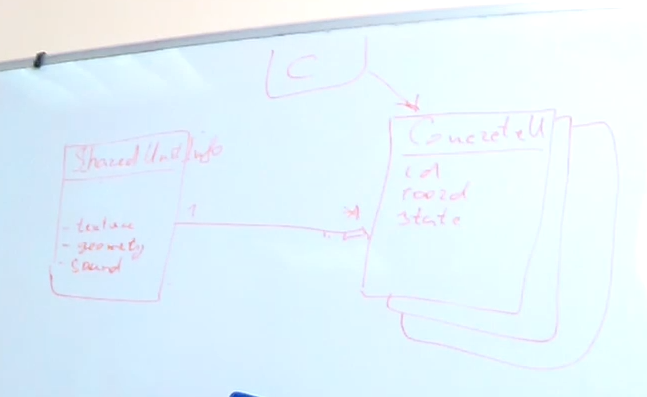 C
SharedUnitInfo
- texture
- geometry
- sound
1
*
ConcreteU
id
coord
state